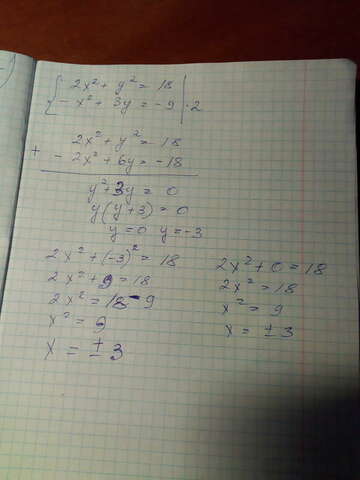 2x² + y² = 18
- x² + 3y = -9 | · 2
2x² + y² = 18
+ - 2x² + 6y = -18
y² + 3y = 0
y(y+3) = 0
y = 0 y = -3
2x² + (-3)² = 18
2x² + 9 = 18
2x² = 18 - 9
x² = 9
x = ± 3
2x² + 0 = 18
2x² = 18
x² = 9
x = ± 3